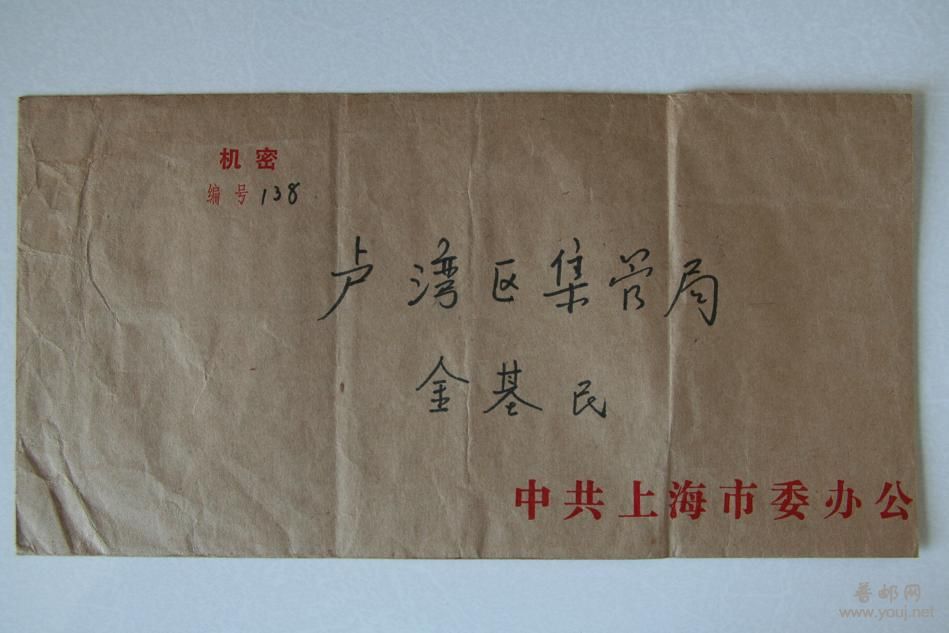 机密
编号 138
卢湾区集管局
金基民
中共上海市委办公
普邮网
www.youj.net